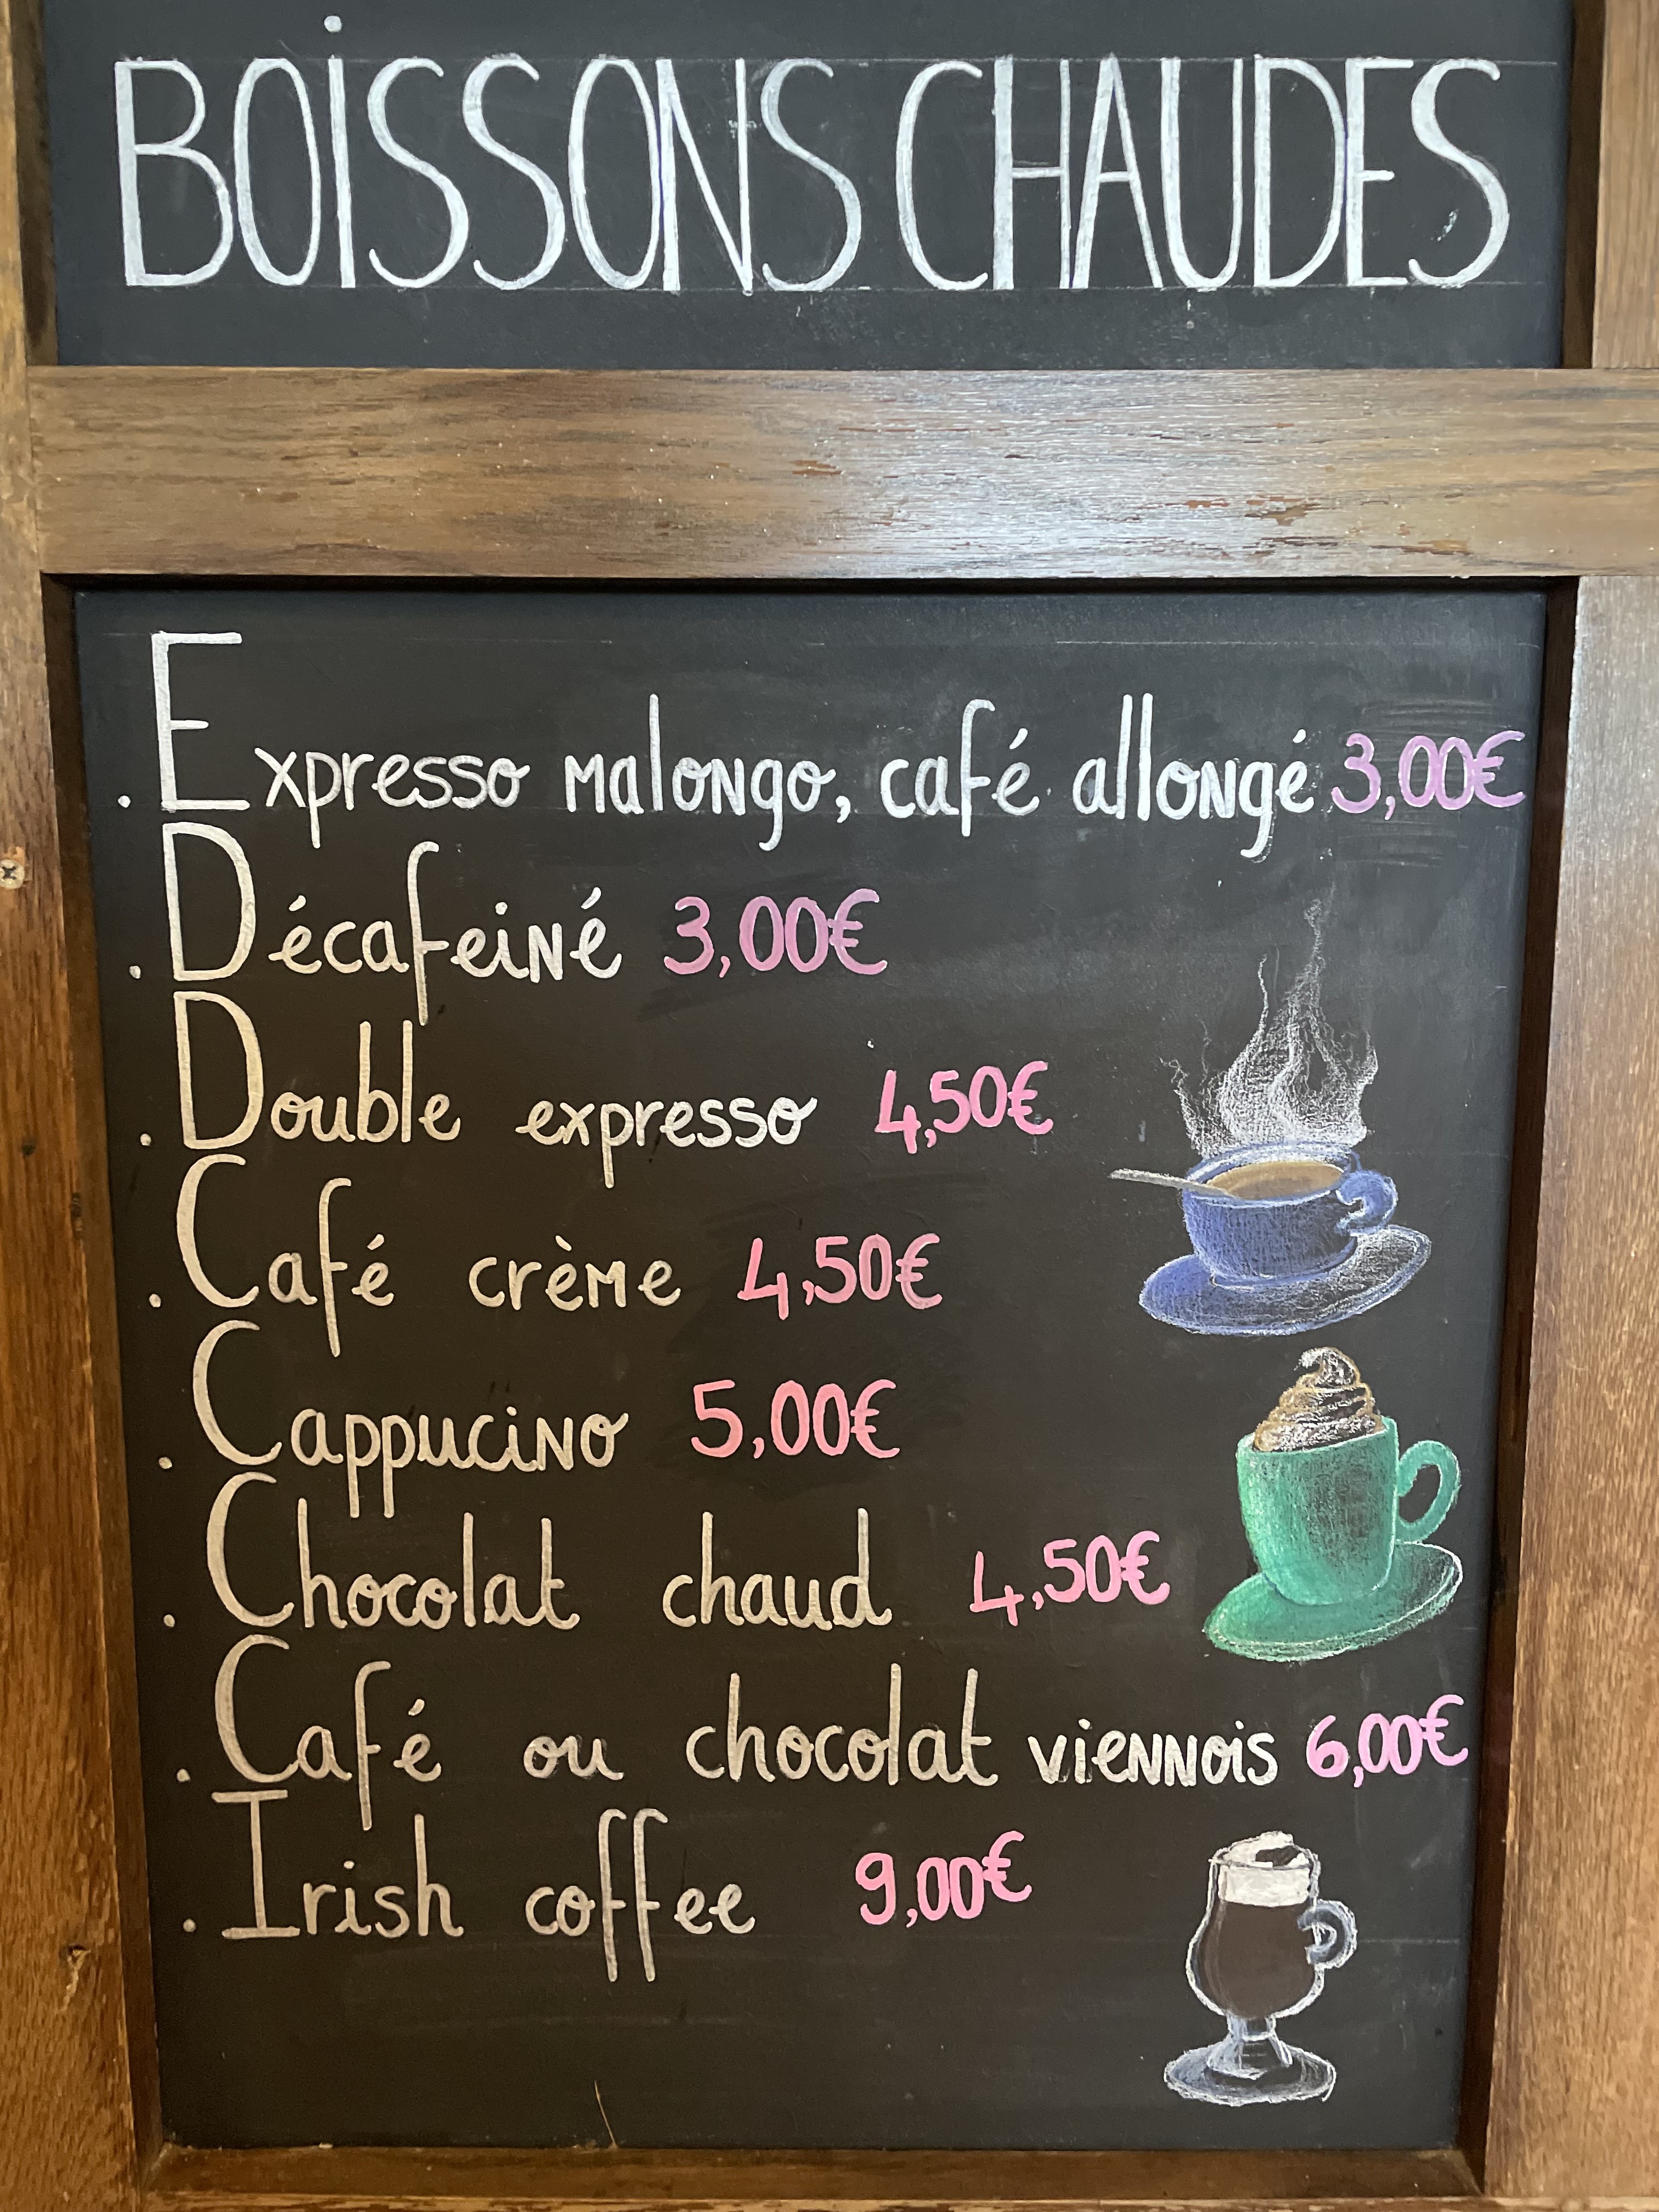 BOISSONS CHAUDES
. Expresso malongo, café allongé 3,00€
. Décafeiné 3,00€
. Double expresso 4,50€
. Café crème 4,50€
. Cappucino 5,00€
. Chocolat chaud 4,50€
. Café ou chocolat viennois 6,00€
. Irish coffee 9,00€